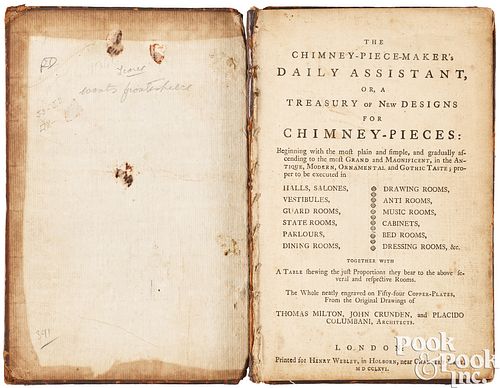 wants frontispiece
391
THE
CHIMNEY-PIECE-MAKER's
DAILY ASSISTANT,
OR, A
TREASURY OF NEW DESIGNS
FOR
CHIMNEY-PIECES:
Beginning with the most plain and simple, and gradually as-
cending to the most GRAND and MAGNIFICENT, in the AN-
TIQUE, MODERN, ORNAMENTAL and GOTHIC TASTE; pro-
per to be executed in
HALLS, SALONES,
VESTIBULES,
GUARD ROOMS,
STATE ROOMS,
PARLOURS,
DINING ROOMS,
DRAWING ROOMS,
ANTI ROOMS,
MUSIC ROOMS,
CABINETS,
BED ROOMS,
DRESSING ROOMS, &c.
TOGETHER WITH
A TABLE shewing the just Proportions they bear to the above se-
veral and respective Rooms.
The Whole neatly engraved on Fifty-four COPPER-PLATES,
From the Original Drawings of
THOMAS MILTON, JOHN CRUNDEN, and PLACIDO
COLUMBANI, ARCHITECTS.
LONDON:
Printed for HENRY WEBLEY, in HOLBORN, near
M DCC LXVI.
Pook & Pook Inc